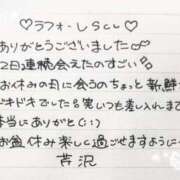 ♡ラフォーレscc♡
ありがとうございました
2日連続会えたのすごい
お休みの日に会うのちょっと新鮮
ドキドキでした笑 いつも差し入れまで
本当にありがとう(:)
お盆休み楽しく過ごせますように
芹沢